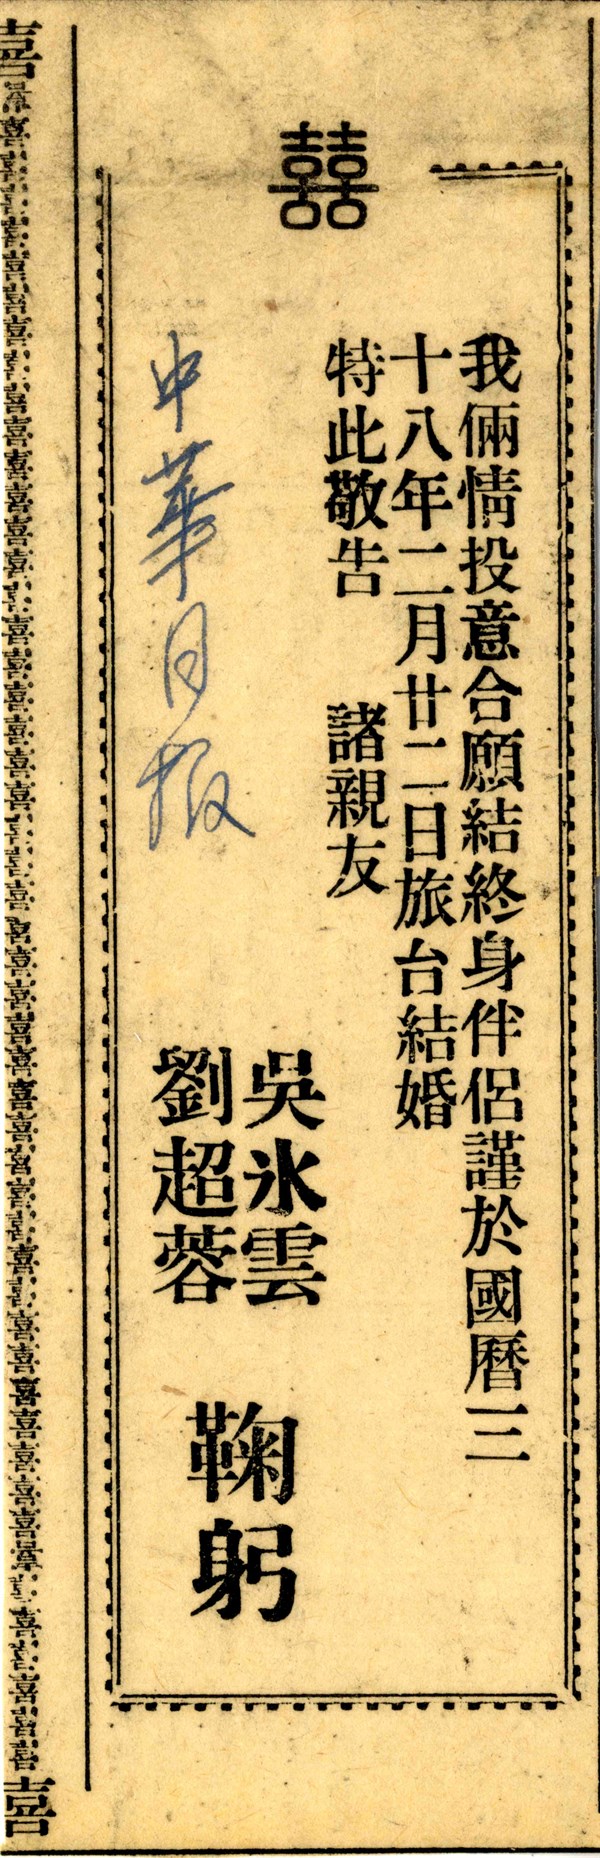 囍
我倆情投意合願結終身伴侶謹於國曆三
十八年二月廿二日旅台結婚
特此敬告　諸親友
吳氷雲
劉超蓉
鞠躬
中華日报